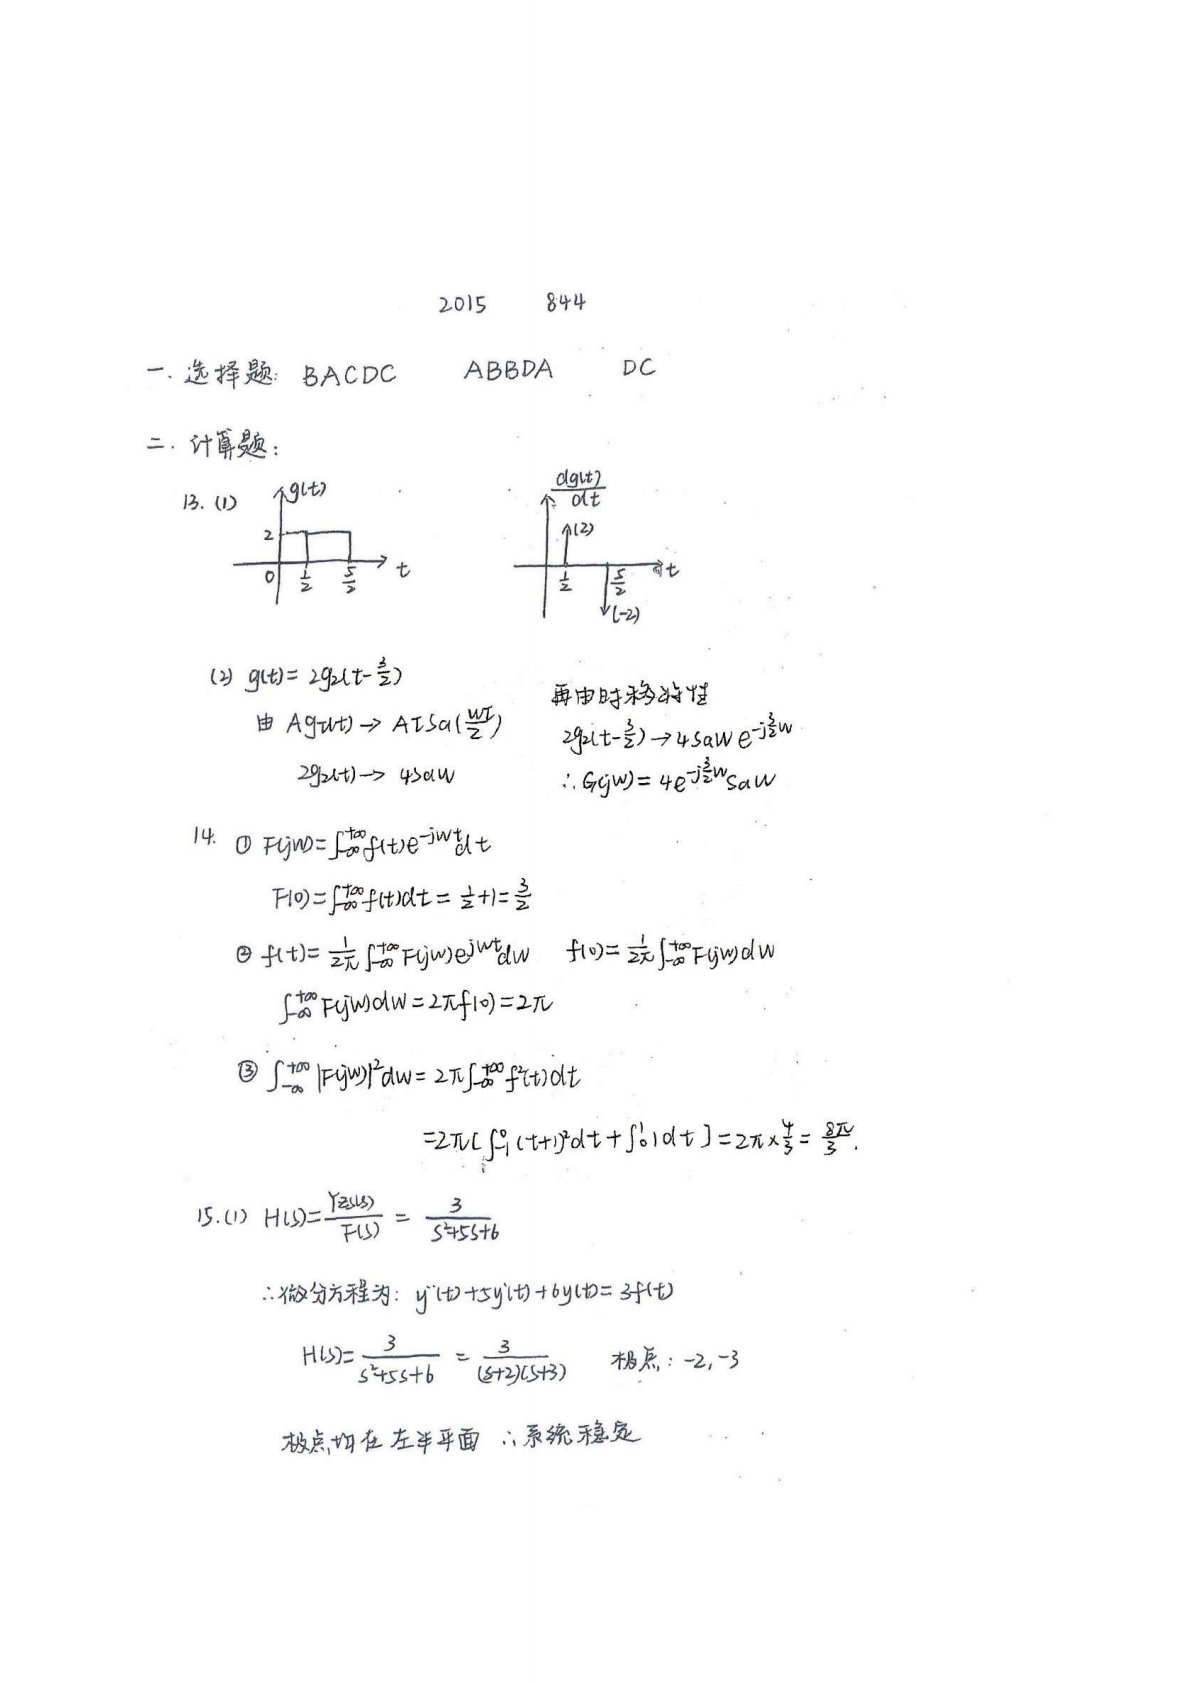 2015 844
一. 选择题: BACDC ABBDA DC
二. 计算题:
13. (1) g(t) 2 0 1/2 5/2 t
dg(t)/dt (2) 1/2 5/2 t (-2)
(2) g(t)= 2g₂(t-3/2)
由 Agτ(t) → AτSa(wτ/2)
2g₂(t) → 4Saw
再由时移特性
2g₂(t-3/2) → 4Saw e^(-j3/2w)
∴ G(jw)= 4e^(-j3/2w)Saw
14. ① F(jw)=∫_{-∞}^{+∞}f(t)e^(-jwt)dt
F(0)=∫_{-∞}^{+∞}f(t)dt = 1/2+1=3/2
② f(t)= 1/2π ∫_{-∞}^{+∞}F(jw)e^(jwt)dw f(0)= 1/2π ∫_{-∞}^{+∞}F(jw)dw
∫_{-∞}^{+∞}F(jw)dw=2πf(0)=2π
③ ∫_{-∞}^{+∞}|F(jw)|²dw= 2π∫_{-∞}^{+∞}f²(t)dt
=2π[∫_{-1}^{0}(t+1)²dt+∫_{0}^{1}1dt]=2π×4/3=8π/3.
15.(1) H(s)=Yzs(s)/F(s) = 3/(s²+5s+6)
∴微分方程为: y''(t)+5y'(t)+6y(t)=3f(t)
H(s)=3/(s²+5s+6) = 3/((s+2)(s+3)) 极点: -2, -3
极点均在左半平面 ∴系统稳定